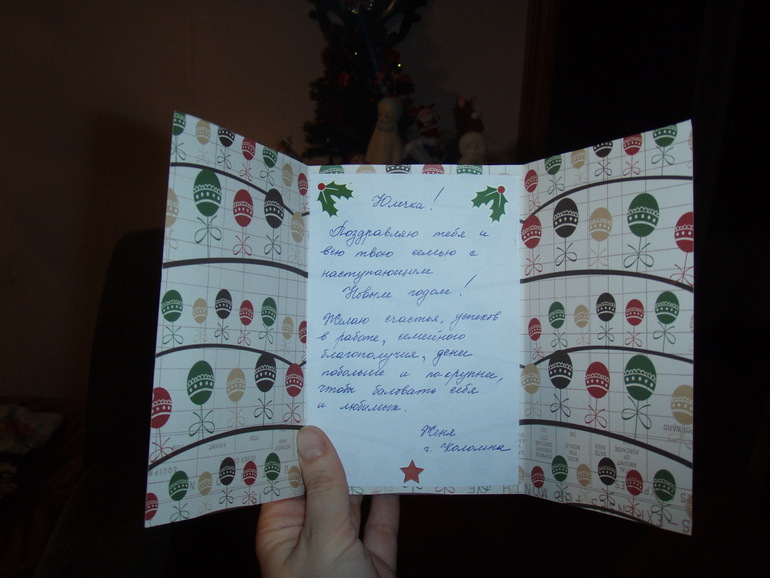 Юлечка!
Поздравляю тебя и
всю твою семью с
наступающим
Новым годом!
Желаю счастья, успехов
в работе, семейного
благополучия, денег
побольше и покрупнее,
чтобы баловать себя
и любимых.
Женя
г. Коломна